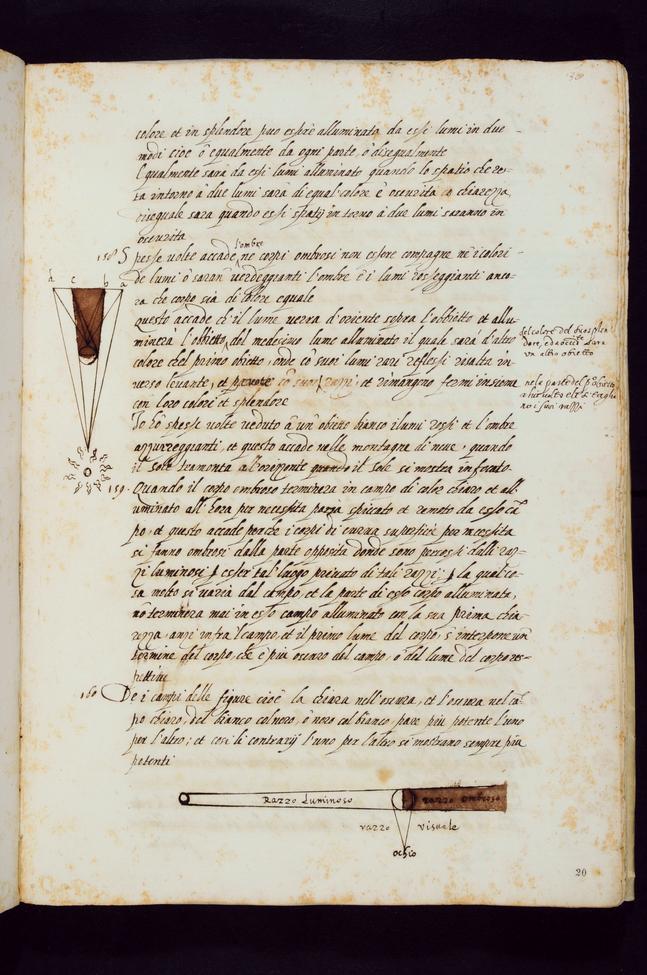 colore et in splendore puo essere alluminata da essi lumi in due
modi cioe ò egualmente da ogni parte, ò disegualmente
Egualmente sara da essi lumi alluminato quando lo spatio che re-
sta intorno à due lumi sarà di egual colore è oscurita ò chiarezza
disegualе sara quando essi spatij intorno à due lumi saranno in
oscurita
158 Spesse volte accade l'ombre ne corpi ombrosi non essere compagne ne i colori
de lumi ò saran verdeggianti l'ombre è i lumi rosseggianti anco-
ra che corpo sia di colore equale
d c b a
questo accade ch il lume verra d'oriente sopra l'obbietto et allu-
minera l'obbietto del medesimo lume alluminato il quale sará d'altro
colore chel primo obietto, onde cō suoi lumi rari reflessi risalta in-
verso levante, et cō suoi razzi, et rimangono fermi insieme
con loro colori et splendore
del colore del suo splen
dore, ed a occide
un altro obietto
nela parte del p.º obietto
li suoi razzi
Io hò spesse volte veduto à un obieto bianco i lumi rossi et l'ombre
azzurreggianti, et questo accade nelle montagne di neve, quando
il sole tramonta a l'orizzonte il sole si mostra infocato.
159. Quando il corpo ombroso terminera in campo di color chiaro et al-
luminato all'hora per necessita parra spiccato et remoto da esso cā
po, et questo accade perche i corpi di curua superficie per necessita
si fanno ombrosi dalla parte opposita donde sono percossi dalli raz-
zi luminosi p esser tal luogo privato di tali razzi; la qual co-
sa molto si varia dal campo, et la parte di esso corpo alluminata,
nō terminera mai in esso campo alluminato con la sua prima chia
rezza, anzi infra l campo, et il primo lume del corpo, s'interpone un
termine del corpo, che è piu oscuro del campo, ò del lume del corpo res-
pettiuo
160 De i campi delle figure cioè la chiara nell'oscura, et l'oscura nel cā
po chiaro, del bianco col nero, ò nero col bianco, pare piu potente l'uno
per l'altro; et cosi li contrarij l'uno per l'altro si mostrano sempre piu
potenti
Razzo Luminoso razzo ombroso
razzo visuale
ochio
20